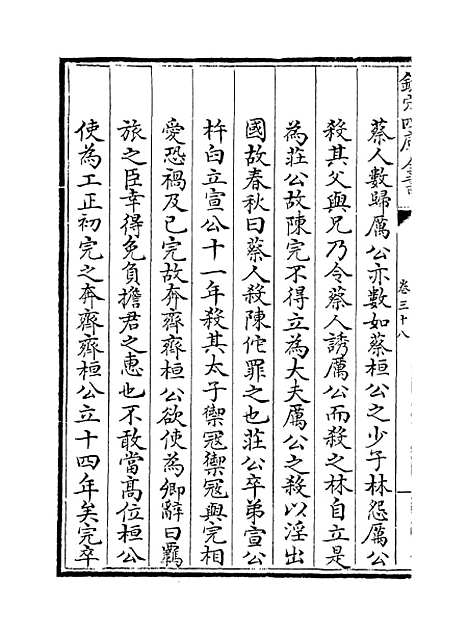 欽定四庫全書
卷三十八
蔡人數歸厲公亦數如蔡桓公之少子林怨厲公
殺其父與兄乃令蔡人誘厲公而殺之林自立是
為莊公故陳完不得立為大夫厲公之殺以淫出
國故春秋曰蔡人殺陳佗罪之也莊公卒弟宣公
杵臼立宣公十一年殺其太子禦寇禦寇與完相
愛恐禍及已完故奔齊齊桓公欲使為卿辭曰羈
旅之臣幸得免負擔君之惠也不敢當髙位桓公
使為工正初完之奔齊齊桓公立十四年矣完卒